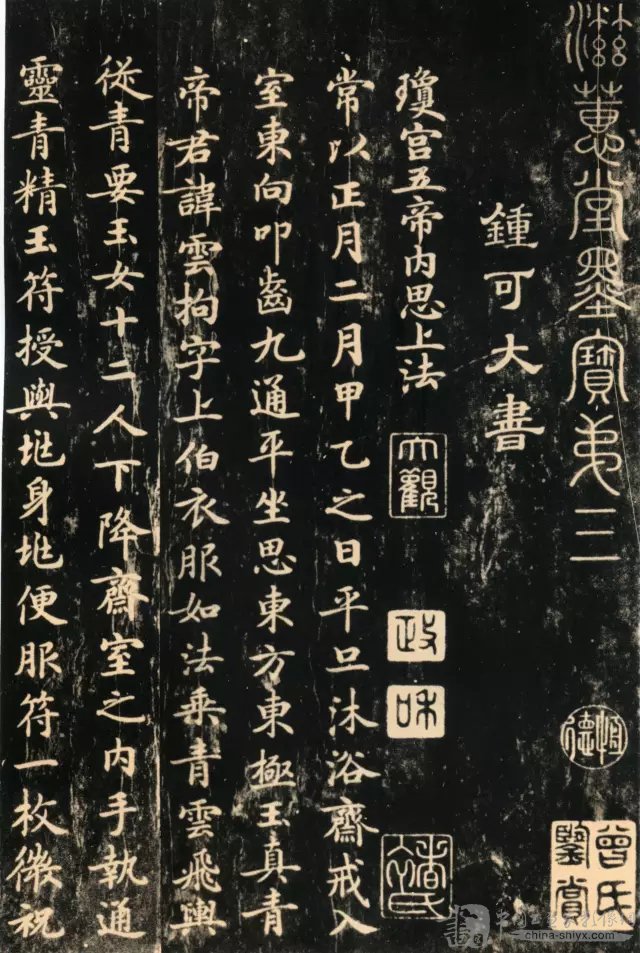 滋蕙堂墨寶第三
鍾可大書
瓊宮五帝内思上法
常以正月二月甲乙之日平旦沐浴齋戒入
室東向叩齒九通平坐思東方東極玉真青
帝君諱雲拘字上伯衣服如法乘青雲飛輿
從青要玉女十二人下降齋室之内手執通
靈青精玉符授與地身地便服符一枚微祝
大觀
政
和
恒德
曾氏
鑒賞
china-shiyx.com